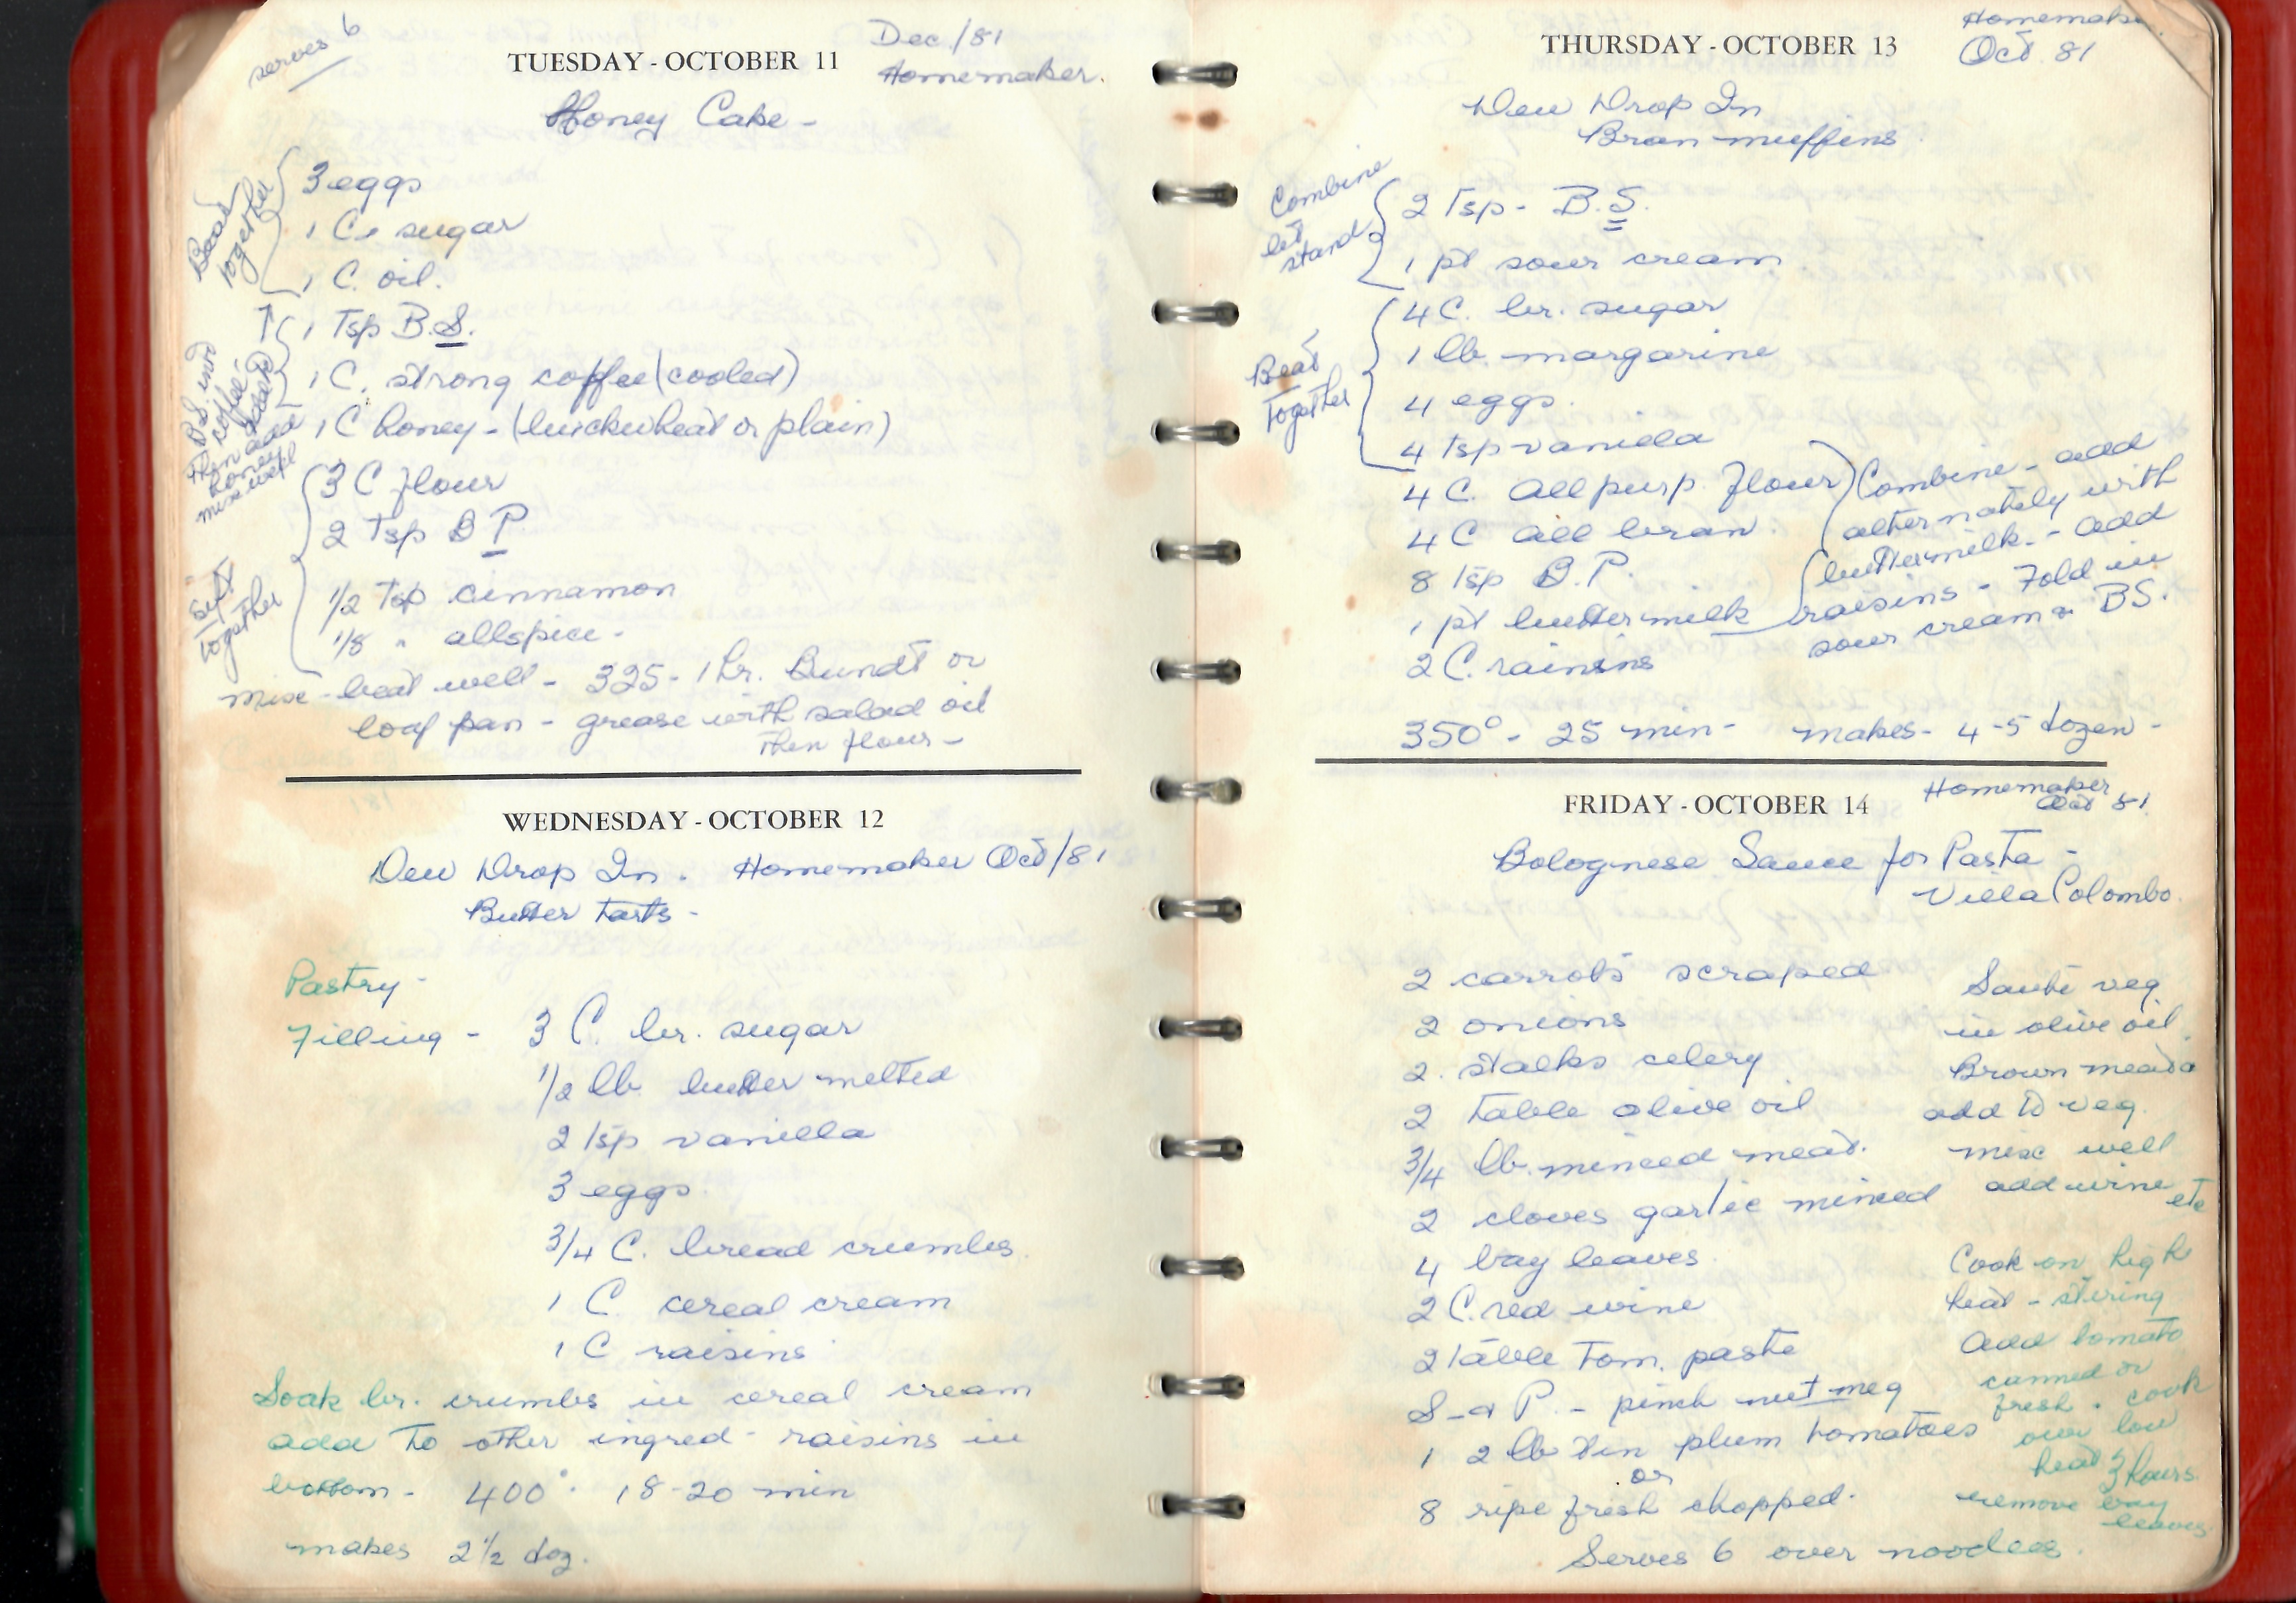 serves 6
TUESDAY - OCTOBER 11
Dec./81
Homemaker.
Honey Cake -
Beat together
3 eggs
1 C. sugar
1 C. oil.
B.S. into
coffee
then add
honey
mix well
1 Tsp B.S.
1 C. strong coffee (cooled)
1 C honey - (buckwheat or plain)
Sift together
3 C flour
2 Tsp B P.
1/2 Tsp cinnamon
1/8 " allspice -
mix - beat well - 325 - 1 hr. Bundt or
loaf pan - grease with salad oil
then flour -
WEDNESDAY - OCTOBER 12
Dew Drop In. Homemaker Oct/81
Butter Tarts -
Pastry -
Filling - 3 C. br. sugar
1/2 lb butter melted
2 tsp vanilla
3 eggs
3/4 C. bread crumbs
1 C. cereal cream
1 C raisins
Soak br. crumbs in cereal cream
add to other ingred - raisins in
bottom - 400° - 18-20 min
makes 2 1/2 doz.
THURSDAY - OCTOBER 13
Homemaker
Oct 81
Dew Drop In
Bran muffins
Combine
let
stand
2 Tsp - B.S.
1 pt sour cream
Beat
together
4 C. br. sugar
1 lb margarine
4 eggs.
4 tsp vanilla
4 C. All purp. flour
4 C all bran.
8 tsp B.P.
1 pt buttermilk
2 C. rainsns
Combine - add
alternately with
buttermilk - add
raisins - Fold in
sour cream & BS.
350° - 25 min - makes - 4-5 dozen -
FRIDAY - OCTOBER 14
Homemaker
Oct 81
Bolognese Sauce for Pasta -
Villa Colombo.
2 carrots scraped
2 onions
2. stalks celery
2 table olive oil
3/4 lb. minced meat.
2 cloves garlic minced
4 bay leaves
2 C. red wine
2 table tom. paste
S - & P. - pinch nutmeg
1 2 lb tin plum tomatoes
or
8 ripe fresh chopped.
Serves 6 over noodles.
Sauté veg
in olive oil.
Brown meat &
add to veg.
mix well
add wine
etc
Cook on high
heat - stiring
Add tomato
canned or
fresh. cook
over low
heat 3 hours.
remove bay
leaves.